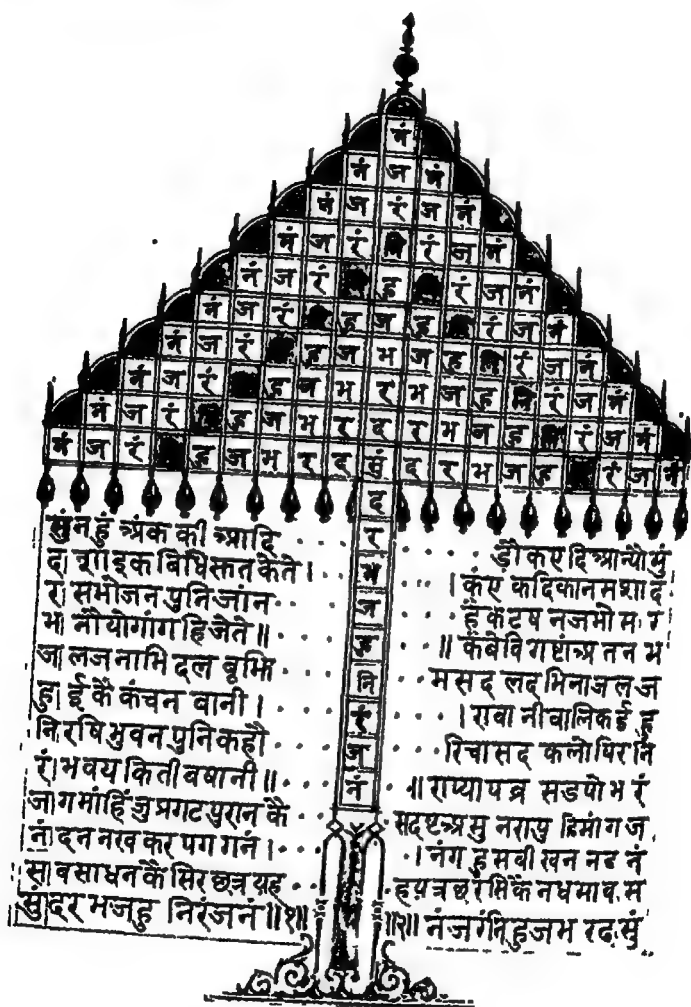 नं
नं ज नं
नं ज रं ज नं
नं ज रं नि रं ज नं
नं ज रं ह रं ज नं
नं ज रं ह ज ह रं ज नं
नं ज रं ह ज भ ज ह नि रं ज नं
नं ज रं ह ज भ र भ ज ह नि रं ज नं
नं ज रं ह ज भ र द र भ ज ह नि रं ज नं
नं ज रं ह ज भ र द सुं द र भ ज ह रं ज नं
द
र
भ
ज
हु
नि
रं
ज
नं
सुंनहुं अंक की आदि
द शा इक बिधि सत केते।
र सभोजन पुनि जांन
भ नौ योगांग हि जेते॥
ज लज नाभि दल बूझि
हु ई कै कंचन वानी।
नि रषि भुवन पुनि कहौ
रं भ वय किती बषानी॥
ज ग मांहिं जु प्रगट पुरान कै
नं दन नख कर पग गनं।
स व साधन कै सिर छत्र यह
सुंदर भजहु निरंजनं॥१॥
डौ कए दिआन्यौ सुं
। कंए कदिकानमशा द
हैं कटष नजभो स र
॥ कंबेविगष्टांअ तन भ
मसद लद भिनाजल ज
। रावा नीवालिकईहु
रिचासद कलोपिर नि
॥ राप्यापव्र सडपोभ रं
सदष्टअसु नरापु हिमांग ज
। नंग हुसबी खन नद नं
हय़त्रछरसिकैनधसाव स
॥२॥ नंजरंनिहुजभ रद सुं